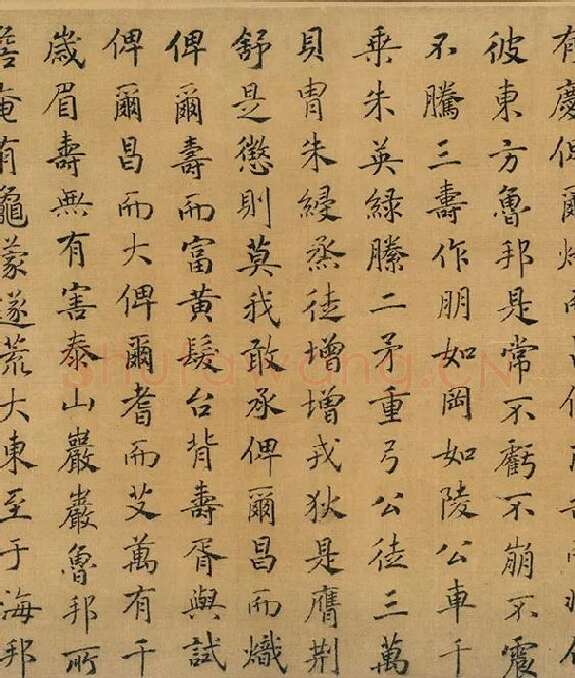 有慶俾爾熾而昌俾爾壽而臧保
彼東方魯邦是常不虧不崩不震
不騰三壽作朋如岡如陵公車千
乘朱英綠縢二矛重弓公徒三萬
貝冑朱綅烝徒增增戎狄是膺荆
舒是懲則莫我敢承俾爾昌而熾
俾爾壽而富黃髮台背壽胥與試
俾爾昌而大俾爾耆而艾萬有千
歲眉壽無有害泰山巖巖魯邦所
詹奄有龜蒙遂荒大東至于海邦
shufawang.CN